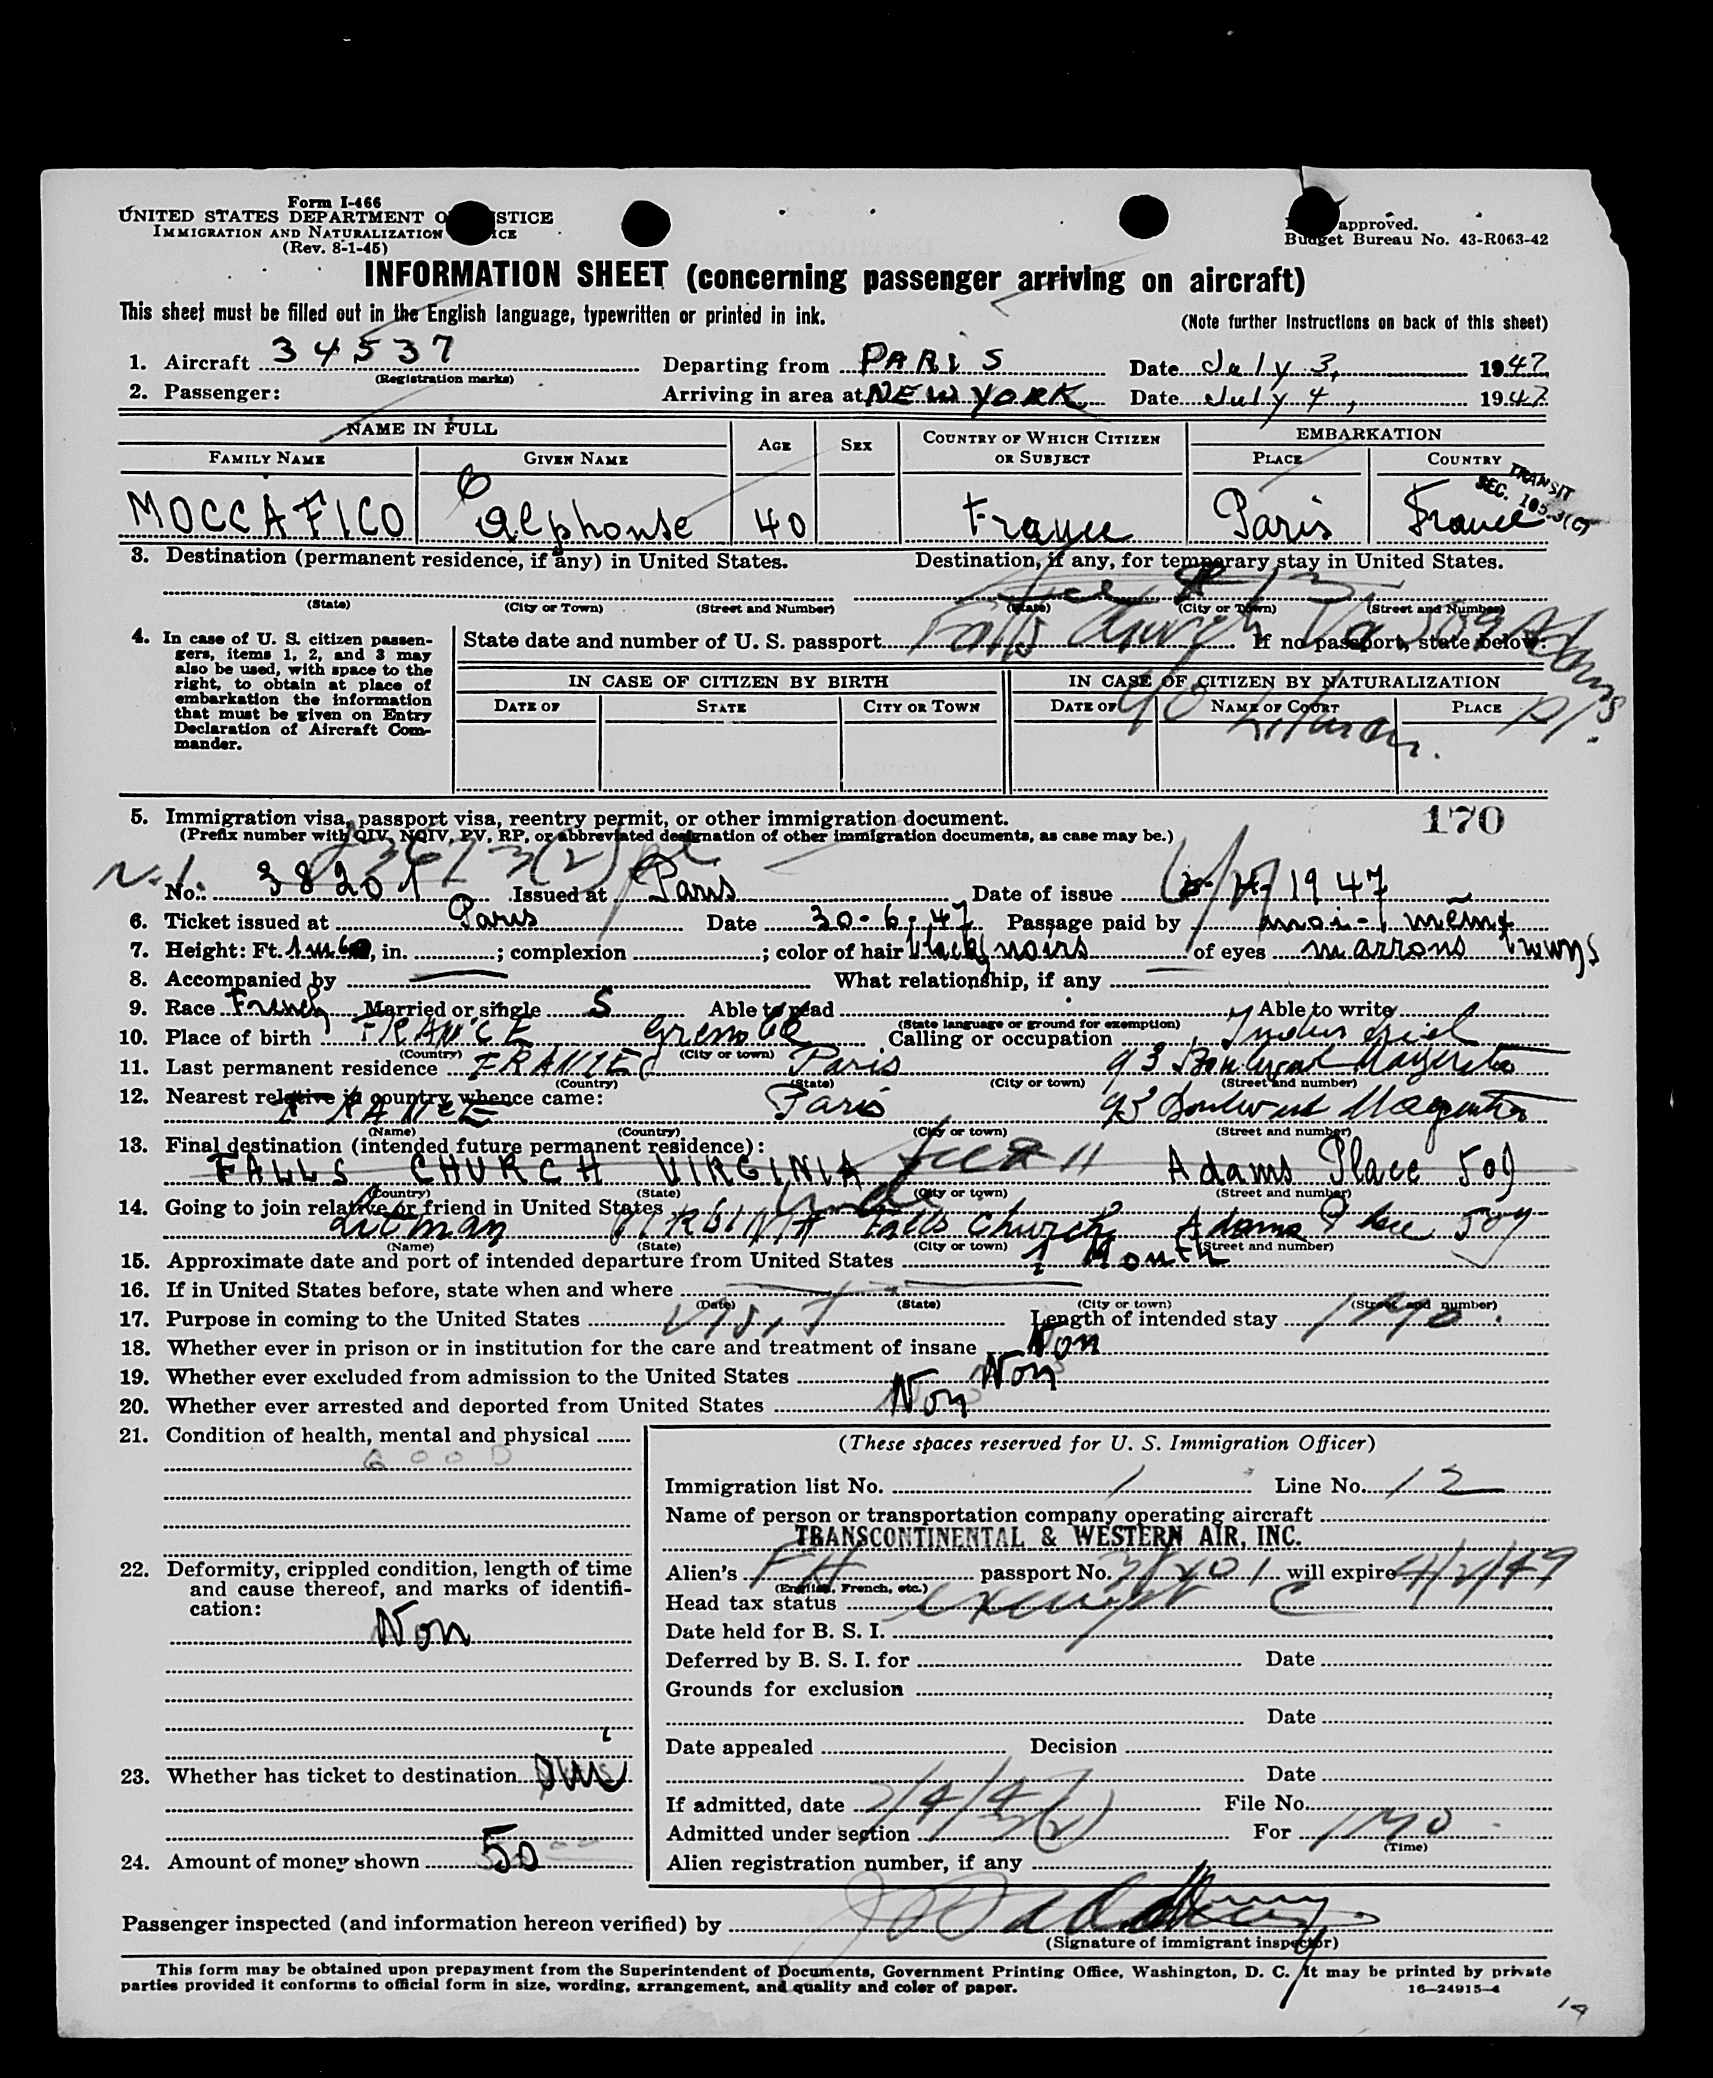 Form I-466
UNITED STATES DEPARTMENT O STICE
IMMIGRATION AND NATURALIZATION ICE
(Rev. 8-1-45)
approved.
Budget Bureau No. 43-R063-42
INFORMATION SHEET (concerning passenger arriving on aircraft)
This sheet must be filled out in the English language, typewritten or printed in ink.
(Note further instructions on back of this sheet)
1. Aircraft 34537 Departing from PARIS Date July 3, 1947
(Registration marks)
2. Passenger: Arriving in area at NEW YORK Date July 4, 1947
NAME IN FULL AGE SEX COUNTRY OF WHICH CITIZEN OR SUBJECT EMBARKATION
FAMILY NAME GIVEN NAME PLACE COUNTRY
TRANSIT
SEC. 105.3(C)
MOCCAFICO Alphonse 40 France Paris France
3. Destination (permanent residence, if any) in United States. Destination, if any, for temporary stay in United States.
See # 13
(State) (City or Town) (Street and Number) (State) (City or Town) (Street and Number)
Falls Church Va 509 Adams Pl.
4. In case of U. S. citizen passengers, items 1, 2, and 3 may also be used, with space to the right, to obtain at place of embarkation the information that must be given on Entry Declaration of Aircraft Commander.
State date and number of U. S. passport If no passport, state below:
IN CASE OF CITIZEN BY BIRTH IN CASE OF CITIZEN BY NATURALIZATION
DATE OF STATE CITY OR TOWN DATE OF NAME OF COURT PLACE
c/o Litman.
170
5. Immigration visa, passport visa, reentry permit, or other immigration document.
(Prefix number with QIV, NQIV, PV, RP, or abbreviated designation of other immigration documents, as case may be.)
No. 38201 Issued at Paris Date of issue 1947
6. Ticket issued at Paris Date 30-6-47 Passage paid by moi-même
7. Height: Ft. 1m60, in. ; complexion ; color of hair black noirs of eyes marrons
8. Accompanied by What relationship, if any
9. Race French Married or single S Able to read Able to write
(State language or ground for exemption)
10. Place of birth FRANCE Grenoble Calling or occupation Industriel
(Country) (City or town)
11. Last permanent residence FRANCE Paris 93 Boulevard Magenta
(Country) (State) (City or town) (Street and number)
12. Nearest relative in country whence came:
FRANCE Paris 93 Boulevard Magenta
(Name) (Country) (City or town) (Street and number)
13. Final destination (intended future permanent residence):
FALLS CHURCH VIRGINIA See # 11 Adams Place 509
(Country) (State) (City or town) (Street and number)
14. Going to join relative or friend in United States
Litman VIRGINIA Falls Church Adams Place 509
(Name) (State) (City or town) (Street and number)
15. Approximate date and port of intended departure from United States 1 Month
16. If in United States before, state when and where
(Date) (State) (City or town) (Street and number)
17. Purpose in coming to the United States Visit Length of intended stay 1 Mo.
18. Whether ever in prison or in institution for the care and treatment of insane Non
19. Whether ever excluded from admission to the United States Non
20. Whether ever arrested and deported from United States Non
21. Condition of health, mental and physical
GOOD
22. Deformity, crippled condition, length of time and cause thereof, and marks of identification:
Non
23. Whether has ticket to destination oui
24. Amount of money shown 50
(These spaces reserved for U. S. Immigration Officer)
Immigration list No. 1 Line No. 12
Name of person or transportation company operating aircraft
TRANSCONTINENTAL & WESTERN AIR, INC.
Alien's FR passport No. 38201 will expire 4/2/49
(English, French, etc.)
Head tax status exempt C
Date held for B. S. I.
Deferred by B. S. I. for Date
Grounds for exclusion
Date
Date appealed Decision
Date
If admitted, date 7/4/47 File No.
Admitted under section 3(2) For 1 MO
(Time)
Alien registration number, if any
Passenger inspected (and information hereon verified) by
(Signature of immigrant inspector)
This form may be obtained upon prepayment from the Superintendent of Documents, Government Printing Office, Washington, D. C. It may be printed by private
parties provided it conforms to official form in size, wording, arrangement, and quality and color of paper.
16—24915-4